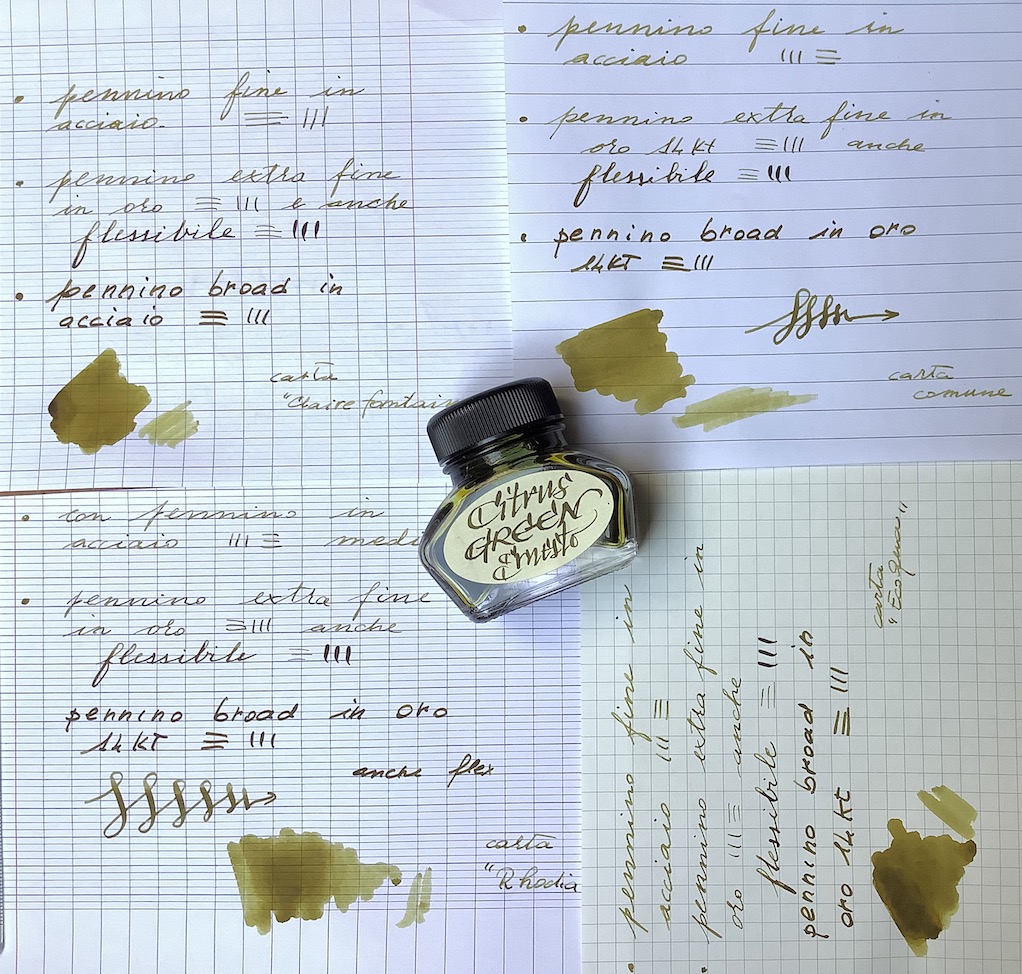 • pennino fine in
acciaio.
• pennino extra fine
in oro e anche
flessibile
• pennino broad in
acciaio
carta
"Claire fontain
• pennino fine in
acciaio
• pennino extra fine in
oro 14kt anche
flessibile
• pennino broad in oro
14KT
carta
comune
Citrus
GREEN
Ernesto
• con pennino in
acciaio medi
• pennino extra fine
in oro anche
flessibile
pennino broad in oro
14KT
anche flex
carta
"Rhodia
• pennino fine in
acciaio
• pennino extra fine in
oro anche
flessibile
pennino broad in
oro 14kt
carta
"EcoQua"